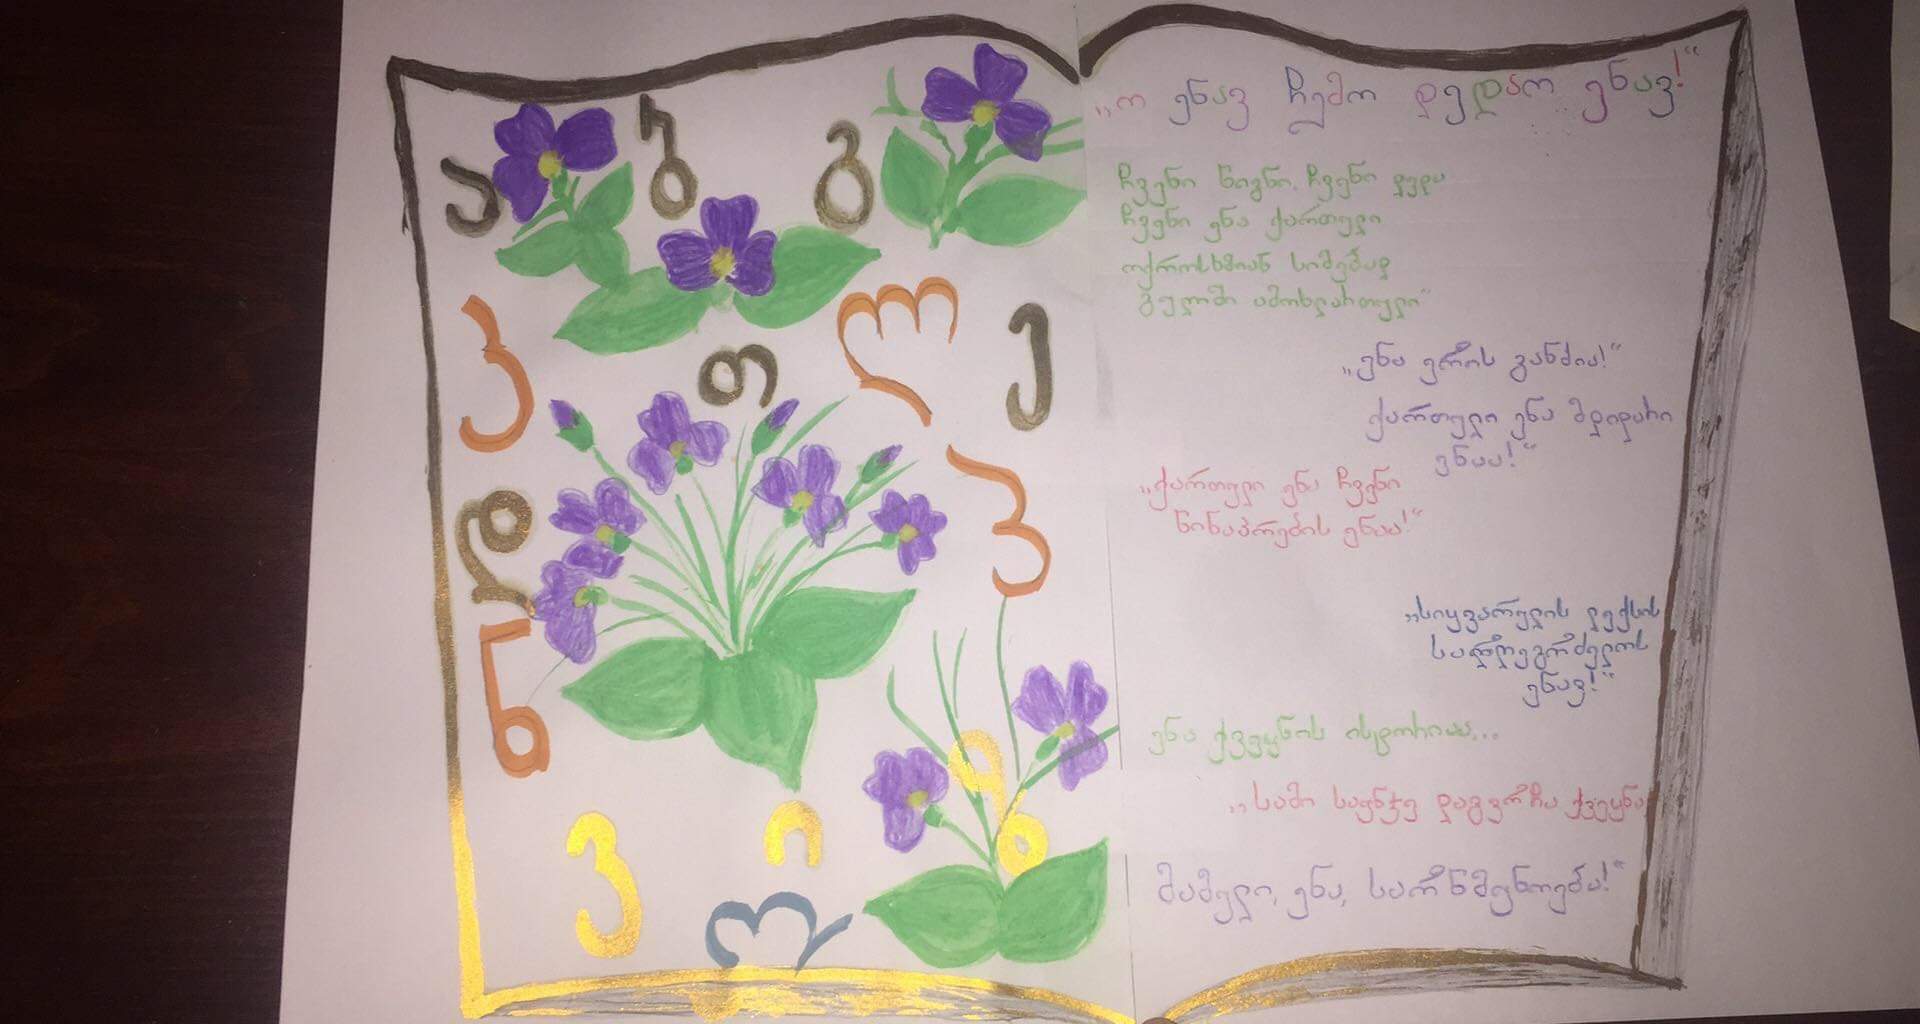 ა ბ გ
კ თ ლ ე
დ პ
ნ
ვ ი
„ო ენავ ჩემო დედაო ენავ!“
ჩვენი წიგნი, ჩვენი დედა
ჩვენი ენა ქართული
ოქროსხმიან სიმებად
გულში ამოხლართული“
„ენა ერის განძია!“
ქართული ენა მდიდარი
ენაა!“
„ქართული ენა ჩვენი
წინაპრების ენაა!“
„სიყვარულის ლექსის
სადღეგრძელოს
ენავ!“
ენა ქვეყნის ისტორიაა...
„სამი საუნჯე დაგვრჩა ქვეყნად
მამული, ენა, სარწმუნოება!“